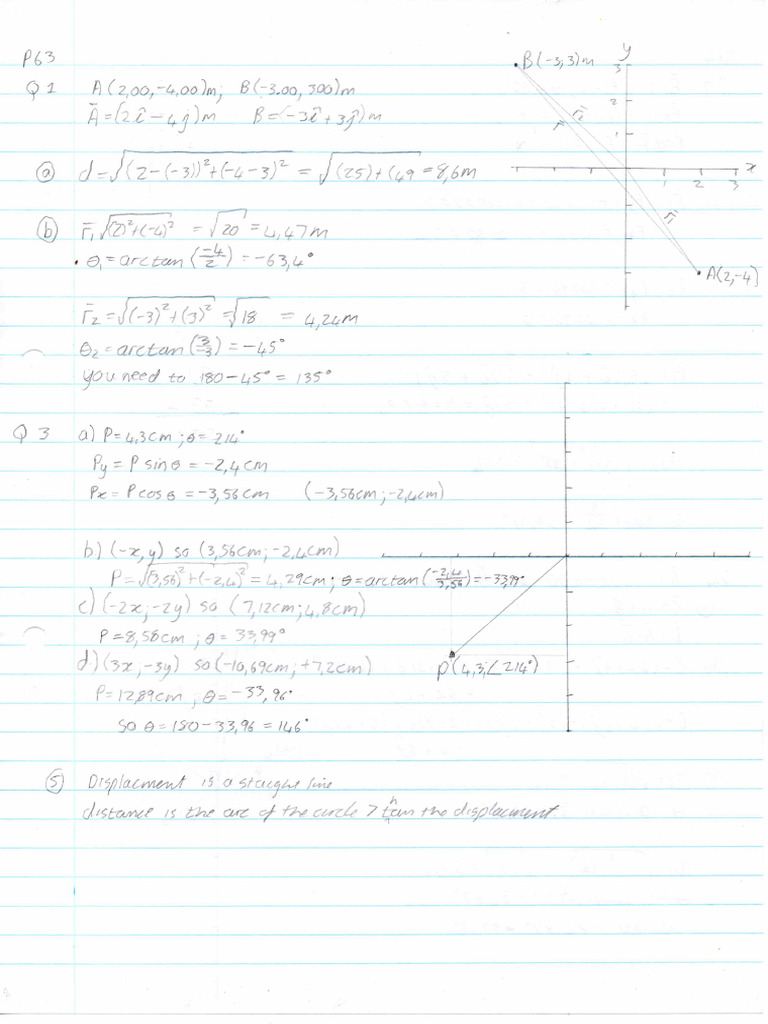 P63
Q1 A(2,00,-4,00)m; B(-3.00, 300)m
Ā=(2î-4ĵ)m B=(-3î+3ĵ)m
(a) d=√(2-(-3))²+(-4-3)² = √(25)+(49 = 8,6m
(b) r̄₁√(2)²+(-4)² = √20 = 4,47m
• θ₁=arctan(-4/2)=-63,4°
r̄₂=√(-3)²+(3)² =√18 = 4,24m
θ₂=arctan(3/-3)=-45°
you need to 180-45°=135°
y
B(-3,3)m
3
2
1
r̄₂
r̄
x
1 2 3
r̄₁
A(2,-4)
Q3 a) P=4,3cm; θ=214°
Py=P sinθ=-2,4cm
Px=Pcosθ=-3,56cm (-3,56cm;-2,4cm)
b) (-x,y) so (3,56cm;-2,4cm)
P=√(3,56)²+(-2,4)²=4,29cm; θ=arctan(-2,4/3,56)=-33,99°
c) (-2x;-2y) so (7,12cm;4,8cm)
P=8,58cm; θ=33,99°
d) (3x;-3y) so(-10,69cm;+7,2cm)
P=12,89cm; θ=-33,96°
so θ=180-33,96=146°
P(4,3,∠214°)
(5) Displacment is a staight line
distance is the arc of the circle > than the displacment